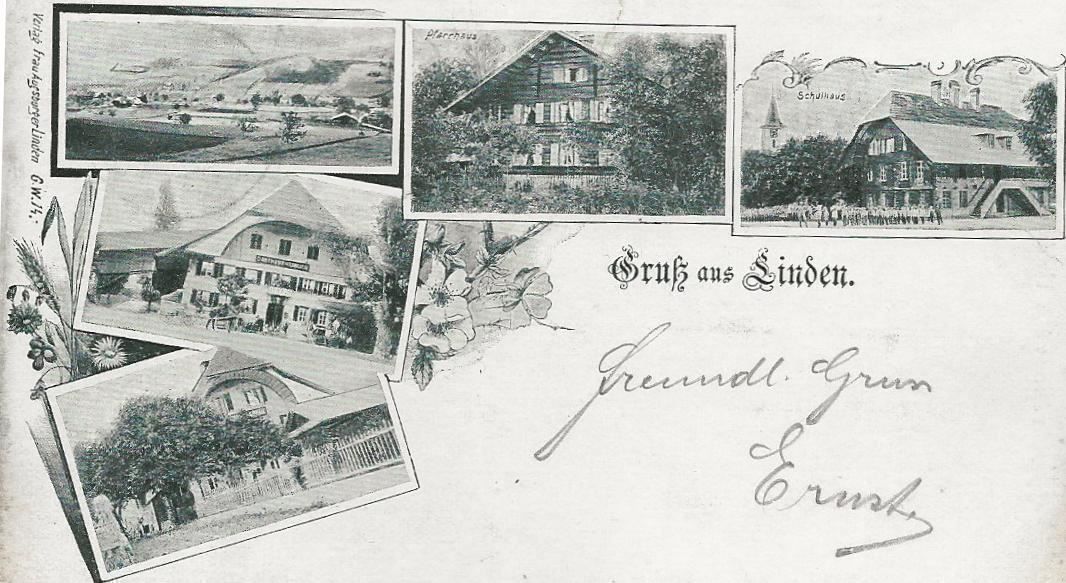 Verlag Frau Augsburger Linden G.W.14.
Pfarrhaus
Schulhaus
Gruß aus Linden.
freundl. Gruss
Ernst.